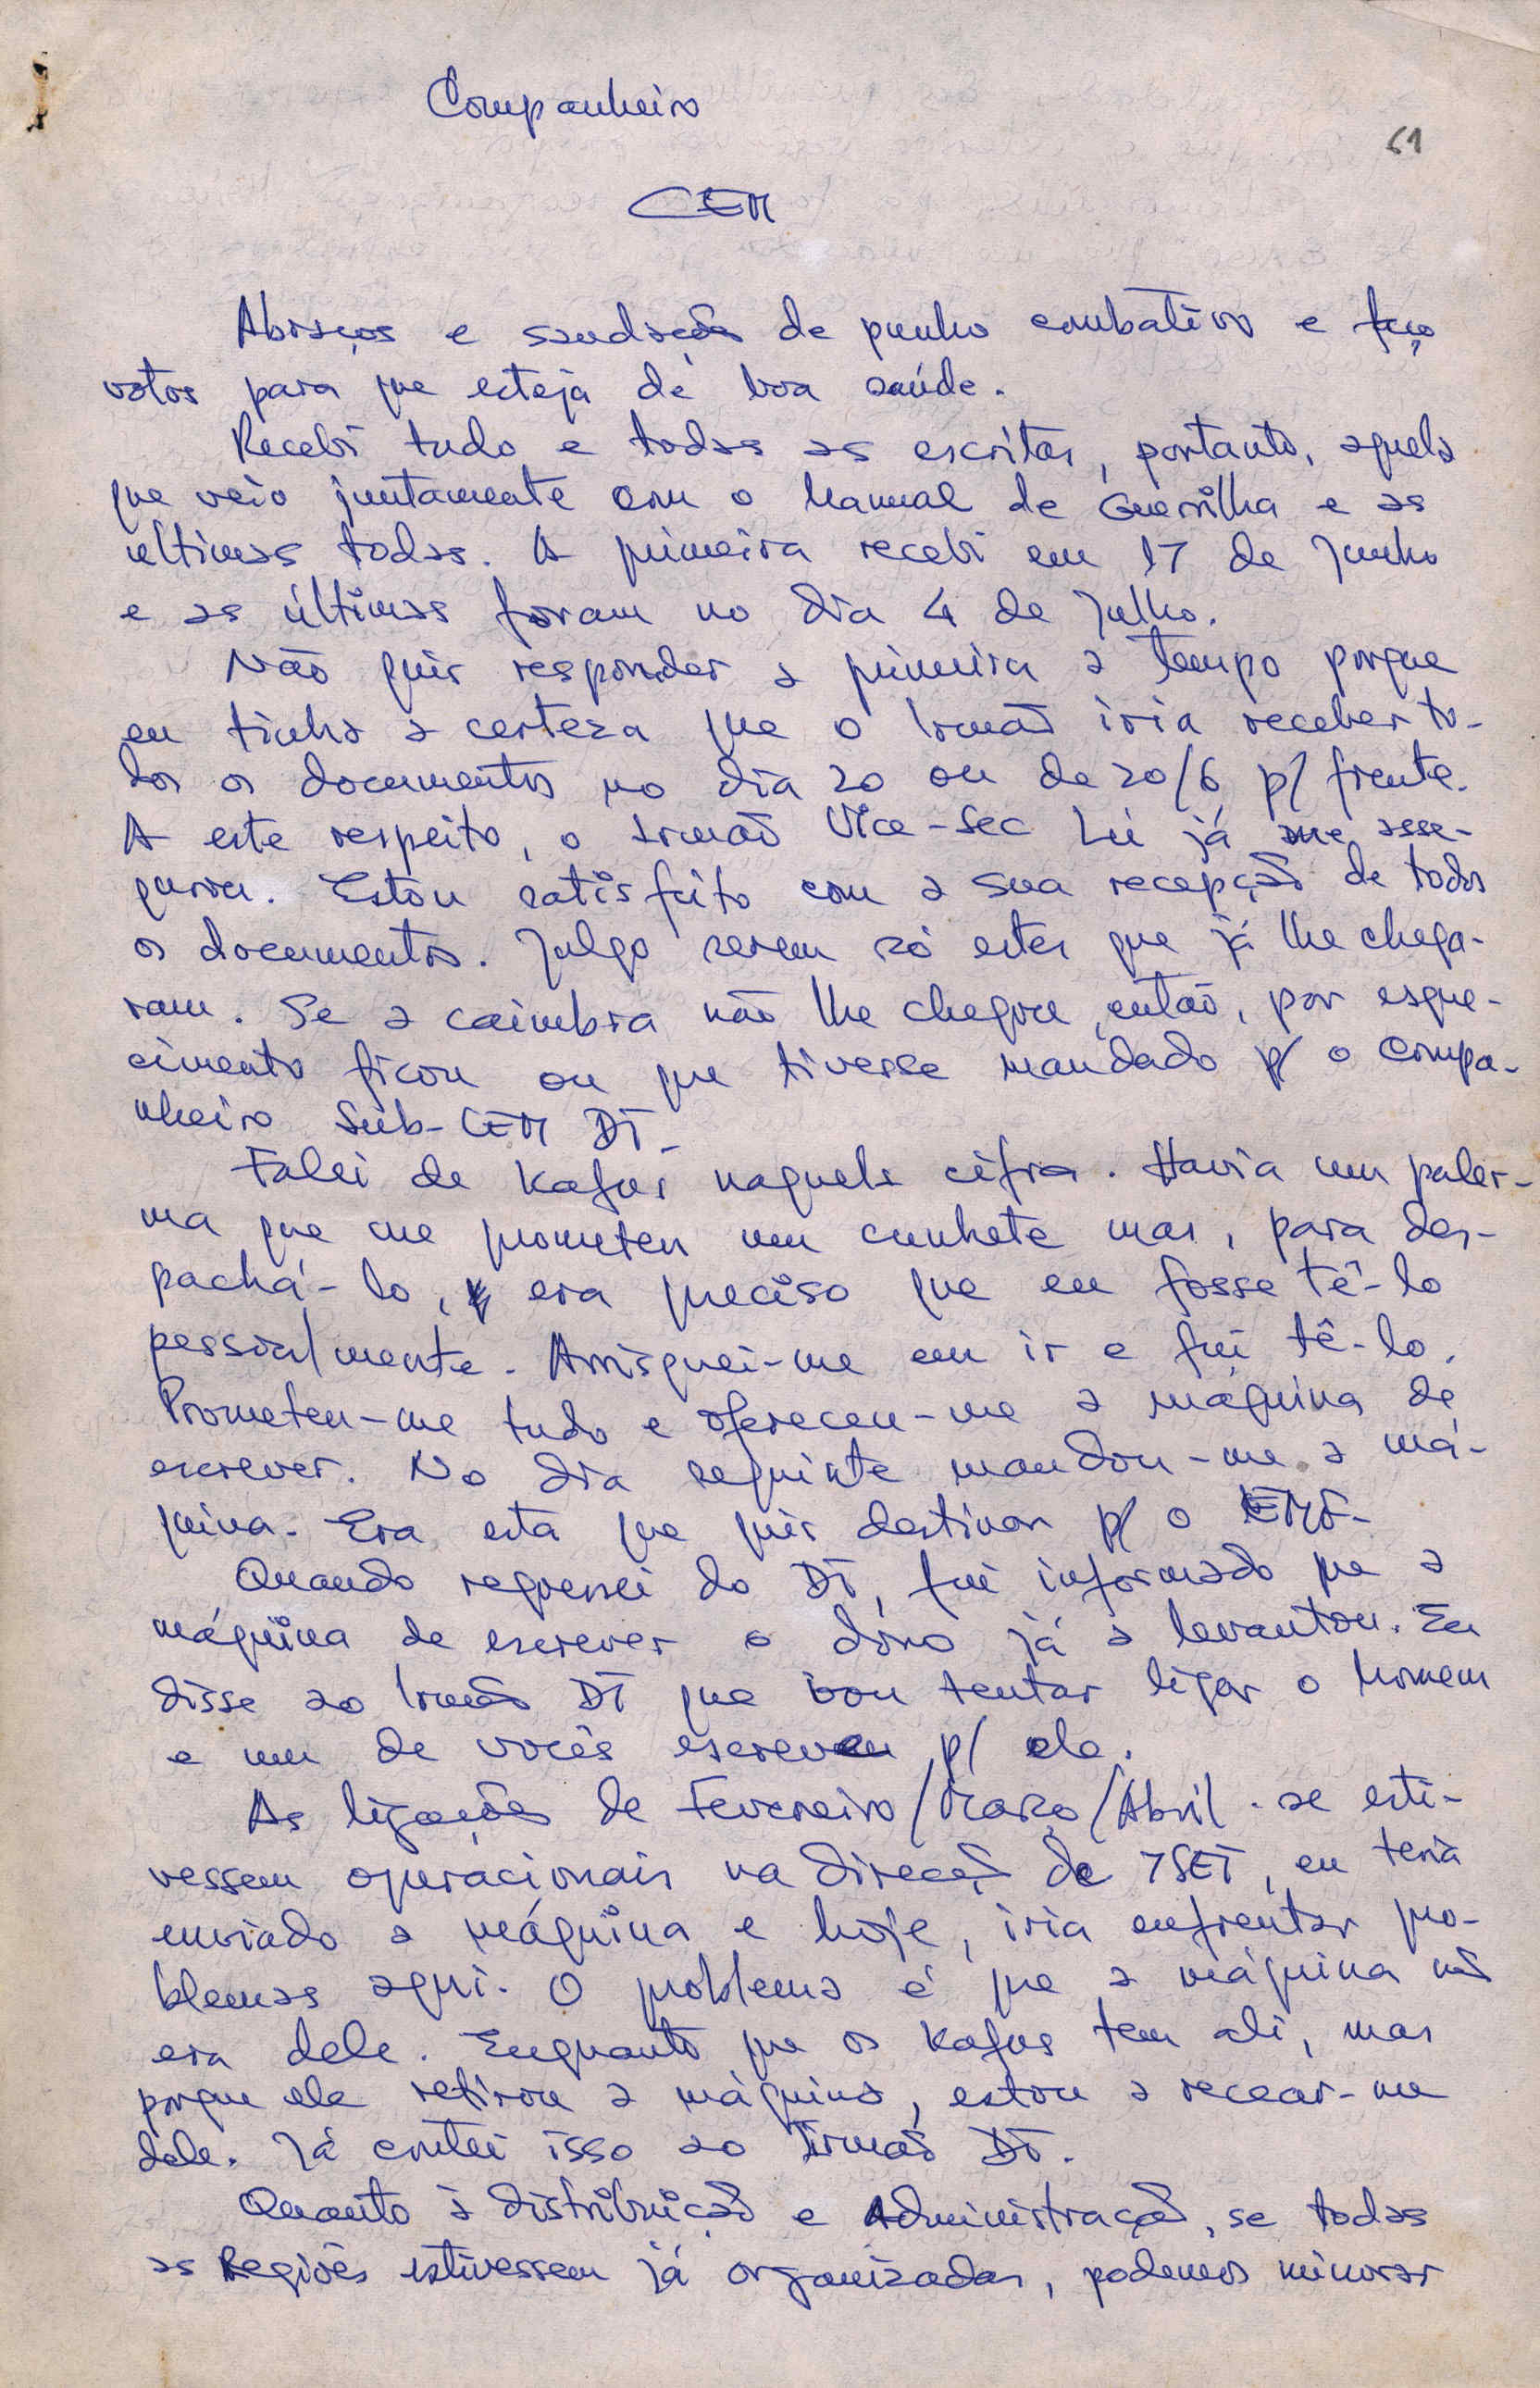 Companheiro
61
CEM
Abraços e saudações de punho combativo e faço
votos para que esteja de boa saúde.
Recebi tudo e todas as escritas, portanto, aquela
que veio juntamente com o Manual de Guerrilha e as
ultimas todas. A primeira recebi em 17 de Junho
e as últimas foram no dia 4 de Julho.
Não quis responder a primeira a tempo porque
eu tinha a certeza que o Irmão iria receber to-
dos os documentos no dia 20 ou de 20/6 p/ frente.
A este respeito, o Irmão Vice-Sec Lu já me asse-
gurou. Estou satisfeito com a sua recepção de todos
os documentos. Julgo serem só estes que já lhe chega-
ram. Se a caimbra não lhe chegou, então, por esque-
cimento ficou ou que tivesse mandado p/ o Compa-
nheiro Sub-CEM DT.
Falei de Kafus naquela cifra. Havia um paler-
ma que me prometeu um cunhete mas, para des-
pachá-lo, era preciso que eu fosse tê-lo
pessoalmente. Arrisquei-me em ir e fui tê-lo.
Prometeu-me tudo e ofereceu-me a máquina de
escrever. No dia seguinte mandou-me a má-
quina. Era esta que quis destinar p/ o EMF.
Quando regressei do DT, fui informado que a
máquina de escrever o dono já a levantou. Eu
disse ao Irmão DT que vou tentar ligar o homem
e um de vocês escrevem p/ ele.
As ligações de Fevereiro/Março/Abril se esti-
vessem operacionais na direcção de 7SET, eu teria
enviado a máquina e hoje, iria enfrentar pro-
blemas aqui. O problema é que a máquina não
era dele. Enquanto que os Kafus tem ali, mas
porque ele retirou a máquina, estou a recear-me
dele. Já contei isso ao Irmão DT.
Quanto à distribuição e Administração, se todas
as Regiões estivessem já organizadas, podemos minorar